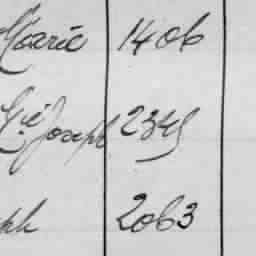 Marie 1406
Mie Joseph 2345
ph 2063